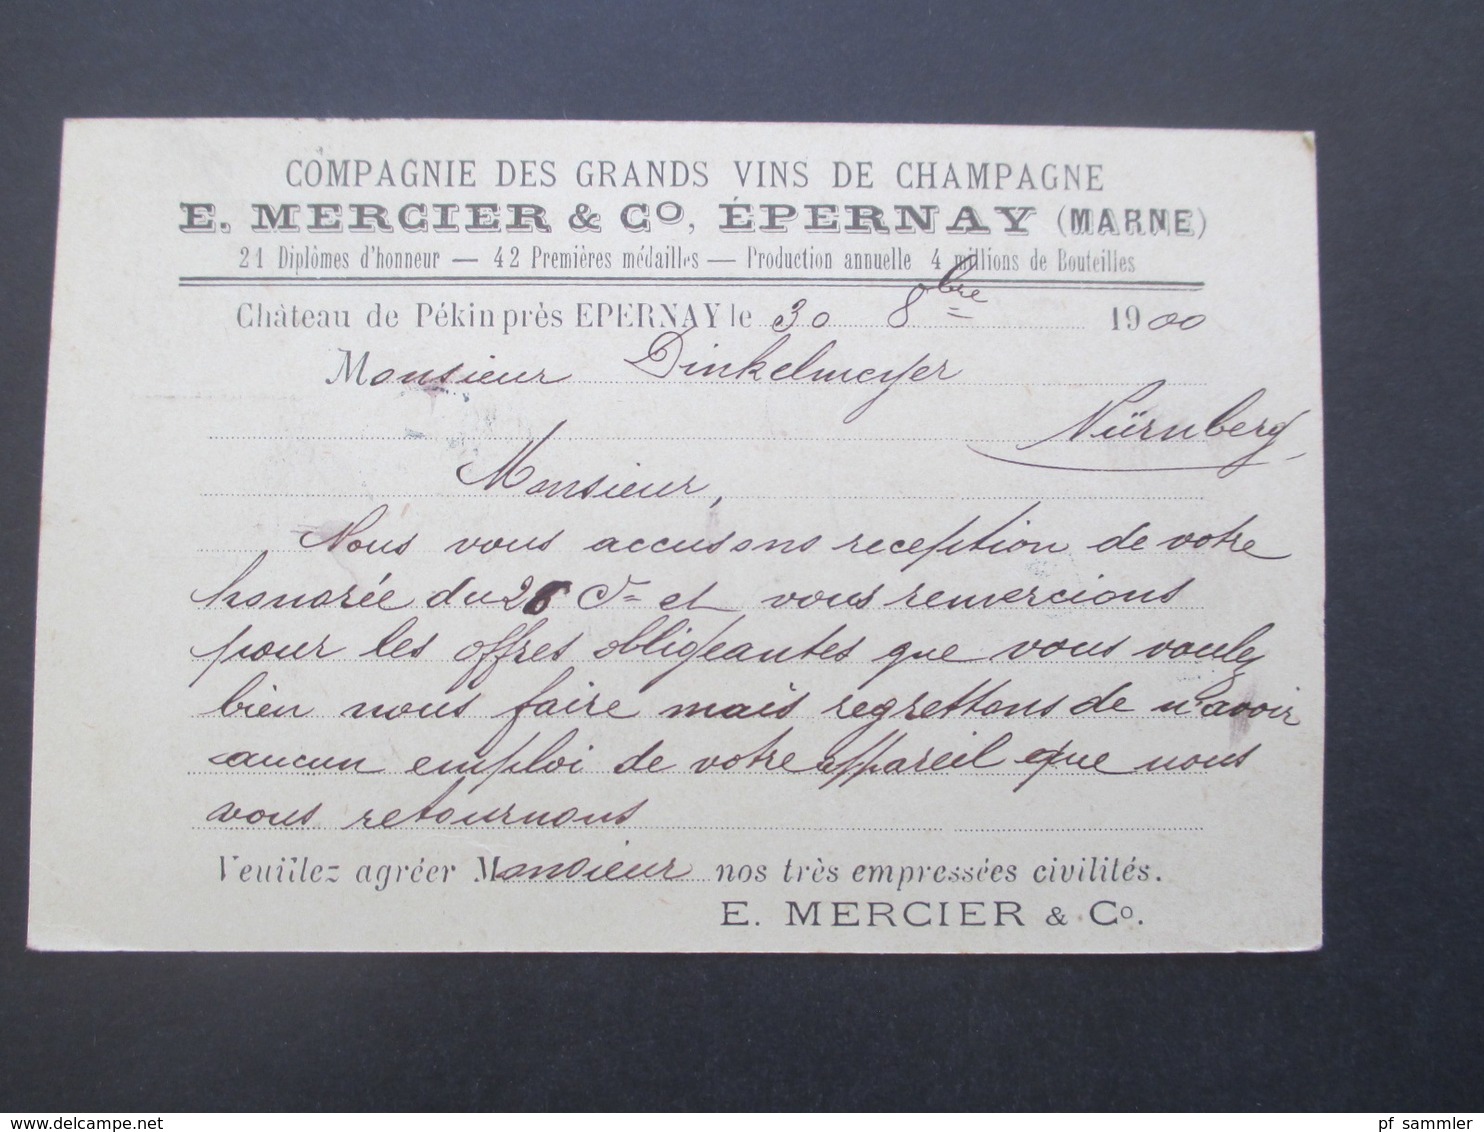 COMPAGNIE DES GRANDS VINS DE CHAMPAGNE
E. MERCIER & Cº, ÉPERNAY (MARNE)
21 Diplômes d'honneur — 42 Premières médailles — Production annuelle 4 millions de Bouteilles
Château de Pékin près EPERNAY le 30 8bre 1900
Monsieur Dinkelmeyer
Nürnberg
Monsieur,
Nous vous accusons reception de votre
honorée du 26 Ct et vous remercions
pour les offres obligeantes que vous voulez
bien nous faire mais regrettons de n'avoir
aucun emploi de votre appareil que nous
vous retournons
Veuillez agréer Monsieur nos très empressées civilités.
E. MERCIER & Cº.
delcampe.net
pf_sammler